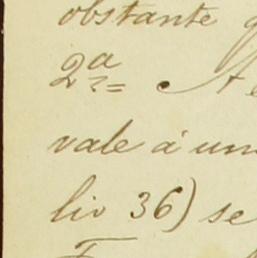 obstante
2ª
vale á um
liv 36) se